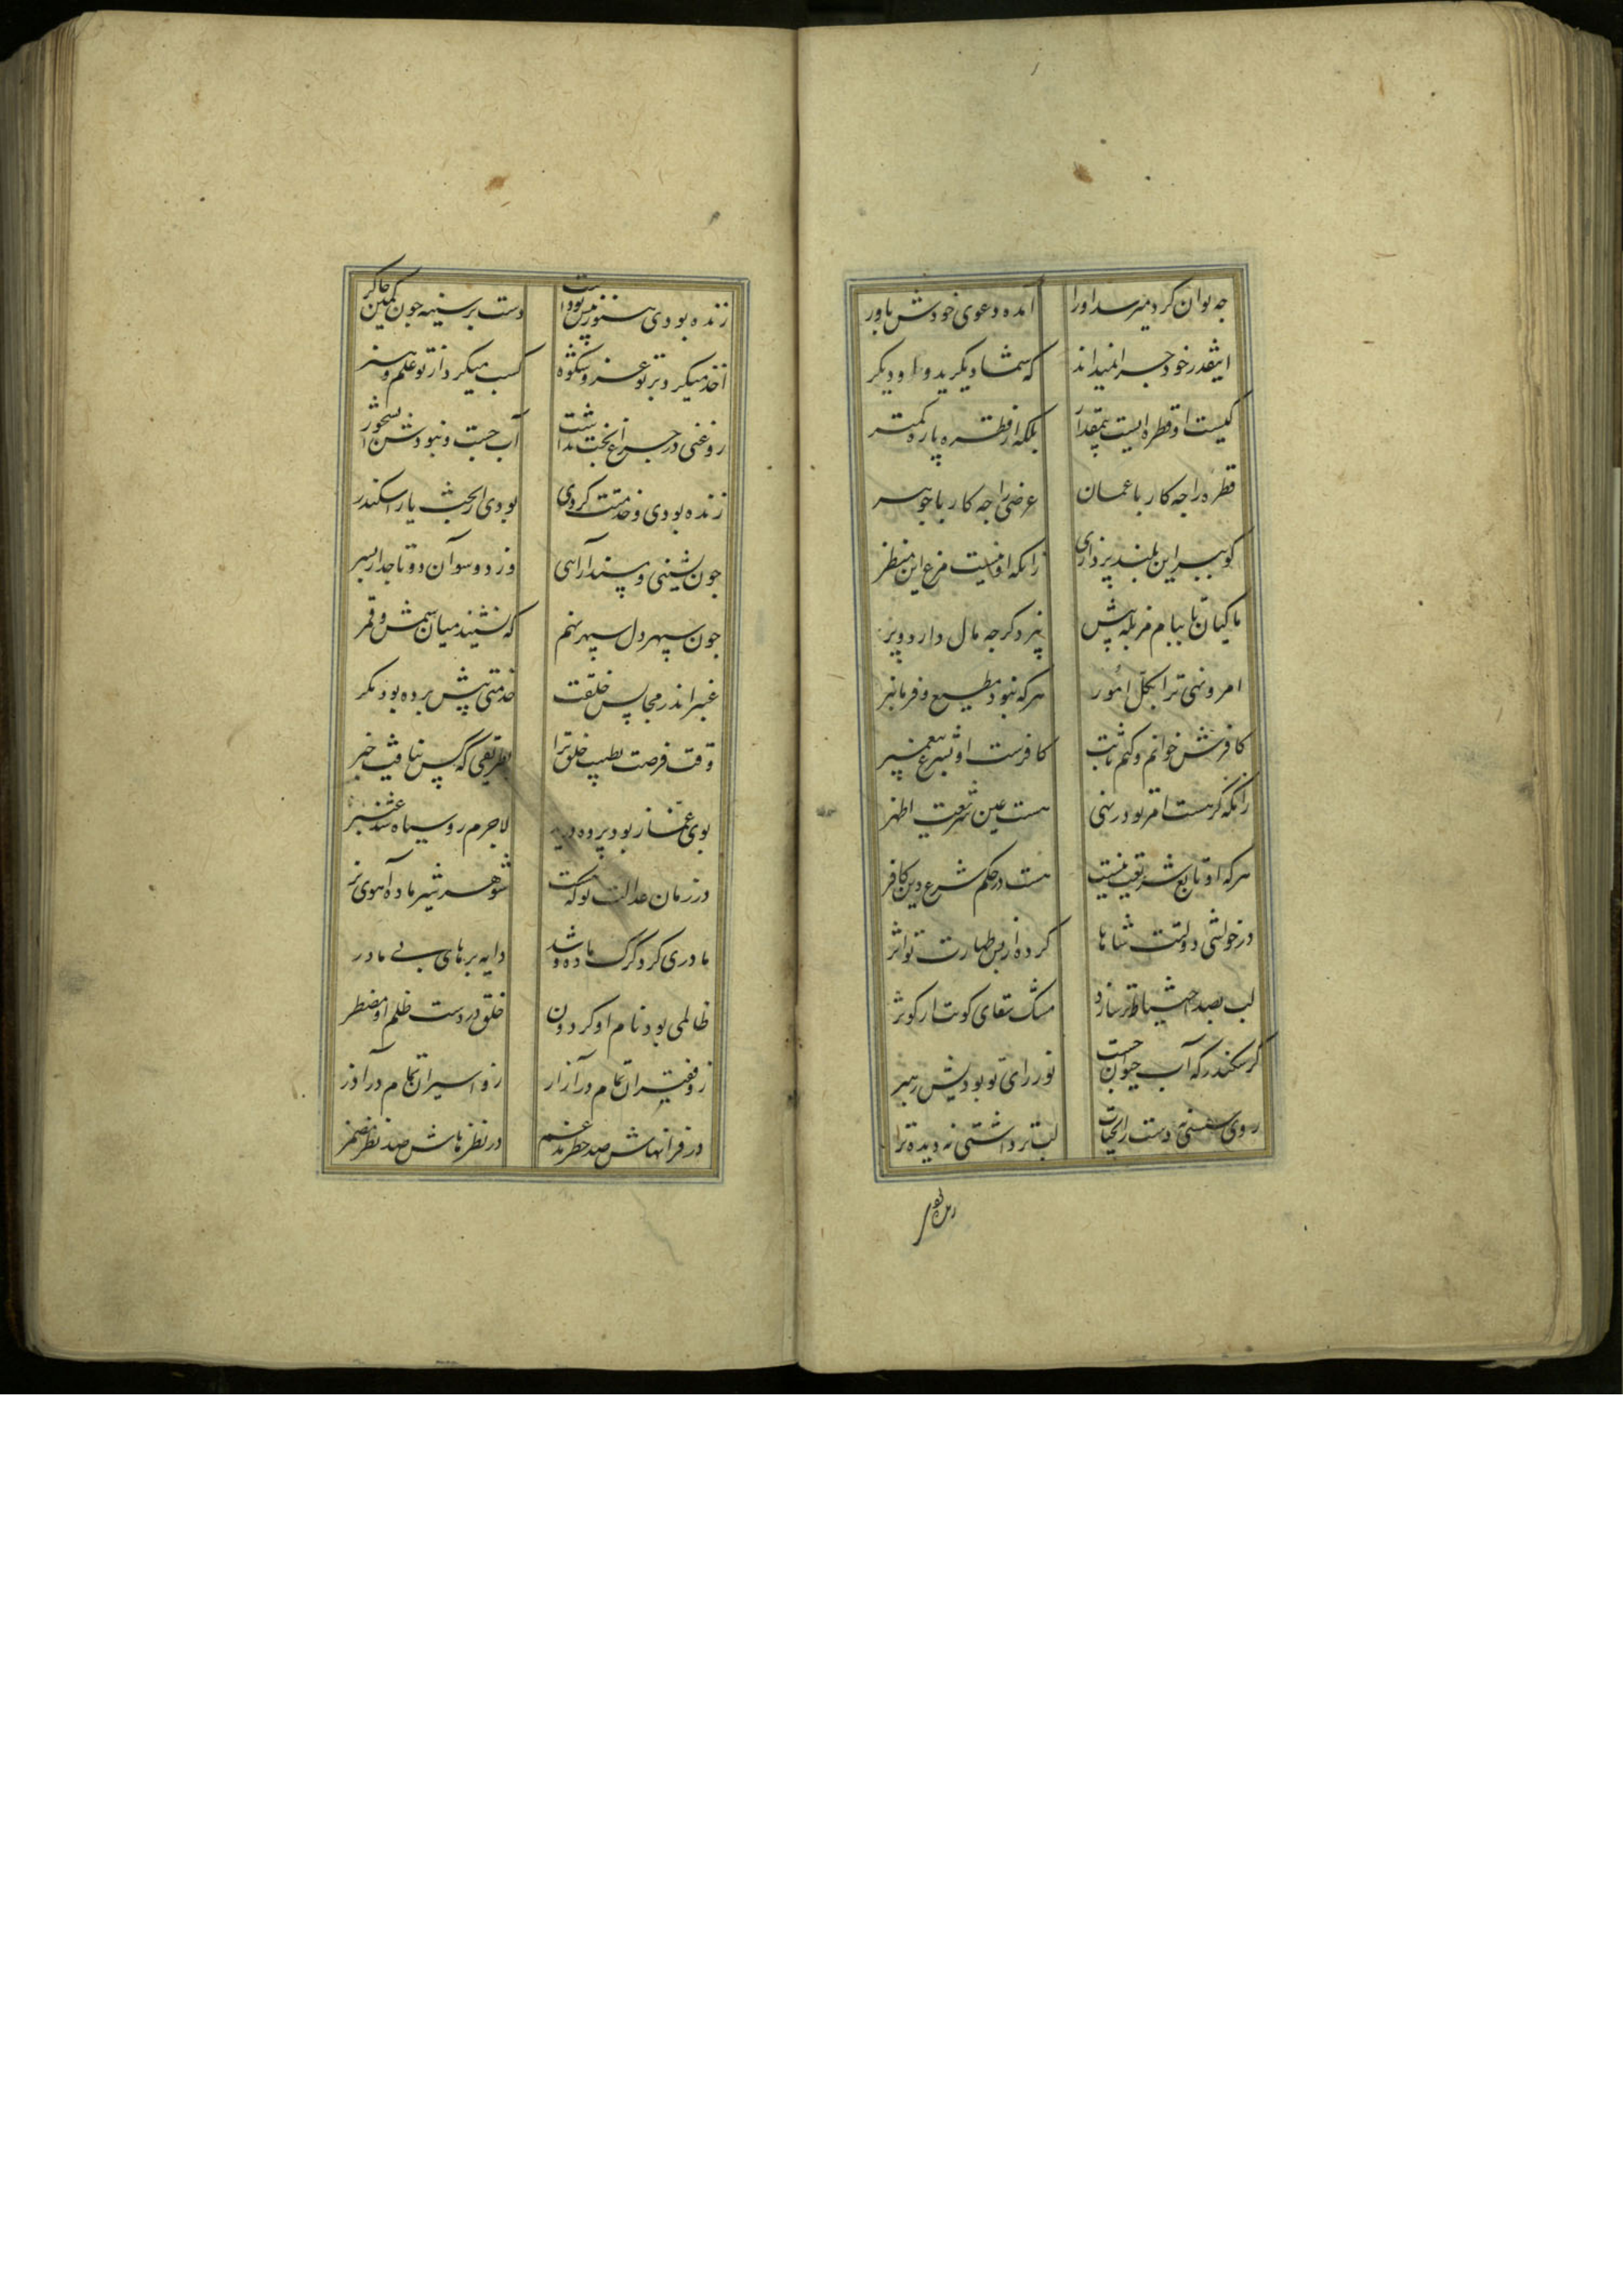 چه توان کرد میرسد او را آمده دعوی خودش باور
اینقدر خود چرا نمیداند که شما دیگرید و او دیگر
کیست او قطره ایست بیمقدار بلکه از قطره پاره کمتر
قطره را چه کار با عمان عرض را چه کار با جوهر
کو ببر این بلند پروازی زانکه او نیست مرغ این منظر
ماکیان تا ببام مزبله پیش نپرد گرچه بال دارد و پر
امر و نهی ترا بکل امور هر که نبود مطیع و فرمانبر
کافرش خوانم و کنم ثابت کافرست او بشرع پیغمبر
زانکه گر هست امر تو ور نهی هست عین شریعت اطهر
هر که او تابع شریعت نیست هست در حکم شرع و دین کافر
در خواشی دولتت شاها کرده از بس طهارت تو اثر
لب بصد احتیاط تر سازد مشک سقای کویت از کوثر
گر سکندر که آب حیوان جست نور رای تو بودیش رهبر
روی شستی نه دست ز آبحیات لب تر داشتی نه دیده تر
زنده بودی
زنده بودی هنوز و پیش تو داشت دست بر سینه چون کمین چاکر
اخذ میکرد بر تو عز و شکوه کسب میکرد از تو علم و هنر
روغنی در چراغ بخت نداشت آب جست و نبودش آبشخور
زنده بودی و خدمتت کردی بودی ار بخت یار اسکندر
چون نشینی و مسند آرایی وز دو سو آن دو تاجدار پسر
چون سپهر دل سپهر نهم که نشیند میان شمس و قمر
عنبر اندر مجالس خلقت خدمتی پیش برده بود مگر
وقت فرصت بطیب خلق ترا بطریقی که کس نیافت خبر
بوی غماز بود پرده درید لاجرم رو سیاه شد عنبر
در زمان عدالت تو که گشت شوهر شیر ماده آهوی نر
مادری کرد گرگ ماده و شد دایه بره‌های بی مادر
ظالمی بود نام او گردون خلق در دست ظلم او مضطر
زو فقیران تمام در آزار زو اسیران تمام در آذر
در قرانهاش صد خطر مدغم در نظرهاش صد نظر مضمر